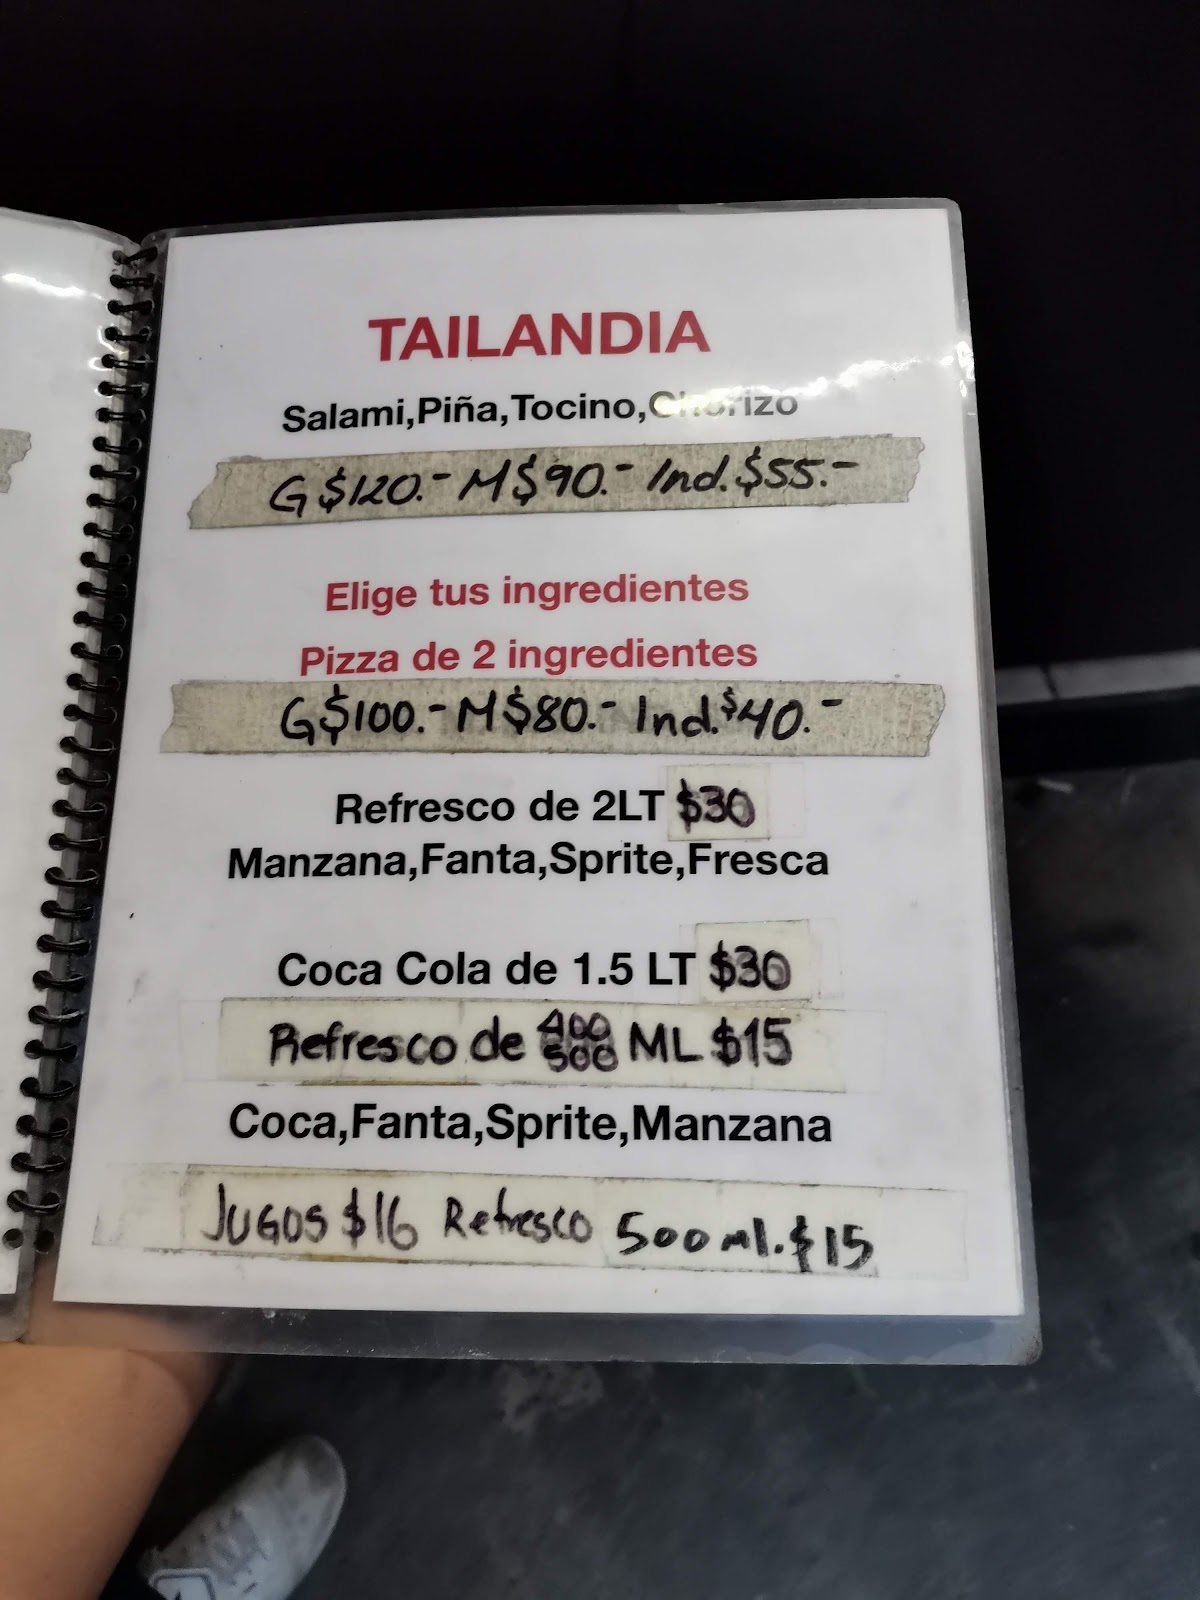 TAILANDIA
Salami,Piña,Tocino,Chorizo
G $120.- M $90.- Ind. $55.-
Elige tus ingredientes
Pizza de 2 ingredientes
G $100.- M $80.- Ind. $40.-
Refresco de 2LT $30
Manzana,Fanta,Sprite,Fresca
Coca Cola de 1.5 LT $30
Refresco de 400 500 ML $15
Coca,Fanta,Sprite,Manzana
JUGOS $16 Refresco 500 ml. $15